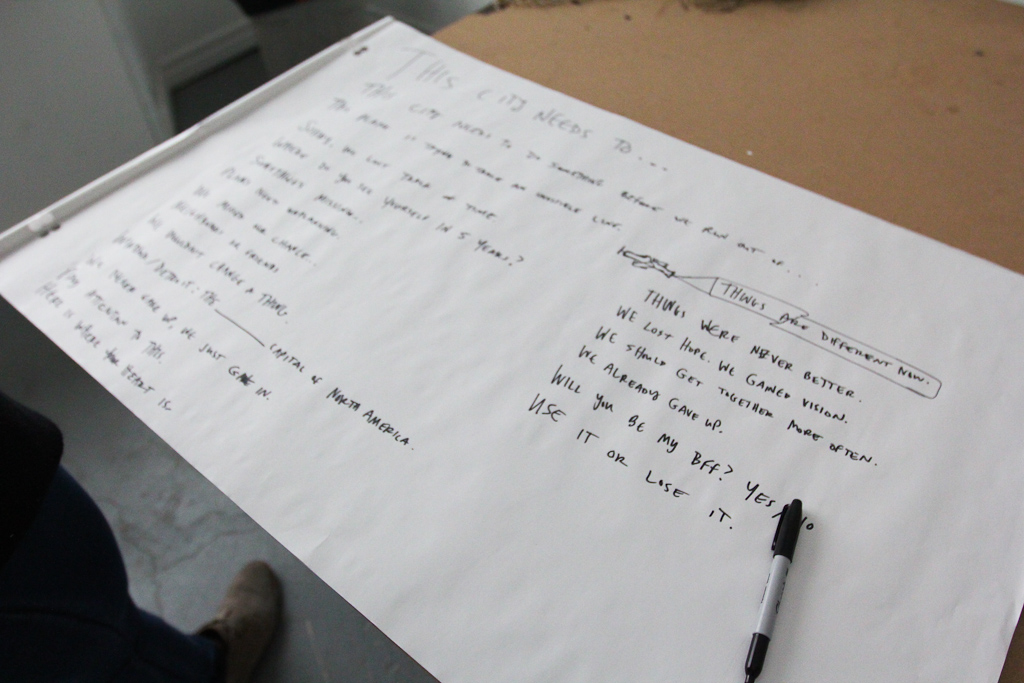 THIS CITY NEEDS TO...
THIS CITY NEEDS TO DO SOMETHING BEFORE WE RUN OUT OF...
THE PLACE IS TRYING TO MAKE AN INVISIBLE LOVE.
SORRY, WE LOST TRACK OF TIME.
WHERE DO YOU SEE YOURSELF IN 5 YEARS?
SOMETHING'S MISSING.
PLANS NEED
WE NEEDED THE CHANGE.
NEIGHBORS OR FRIENDS
WE WOULDN'T CHANGE A THING.
WINDSOR/DETROIT: THE ____ CAPITAL OF NORTH AMERICA.
WE NEVER GAVE UP, WE JUST GAVE IN.
PAY ATTENTION TO THIS.
HERE IS WHERE YOUR HEART IS
THINGS ARE DIFFERENT NOW.
THINGS WERE NEVER BETTER.
WE LOST HOPE. WE GAINED VISION.
WE SHOULD GET TOGETHER MORE OFTEN.
WE ALREADY GAVE UP.
WILL YOU BE MY BFF? YES/NO
USE IT OR LOSE IT.